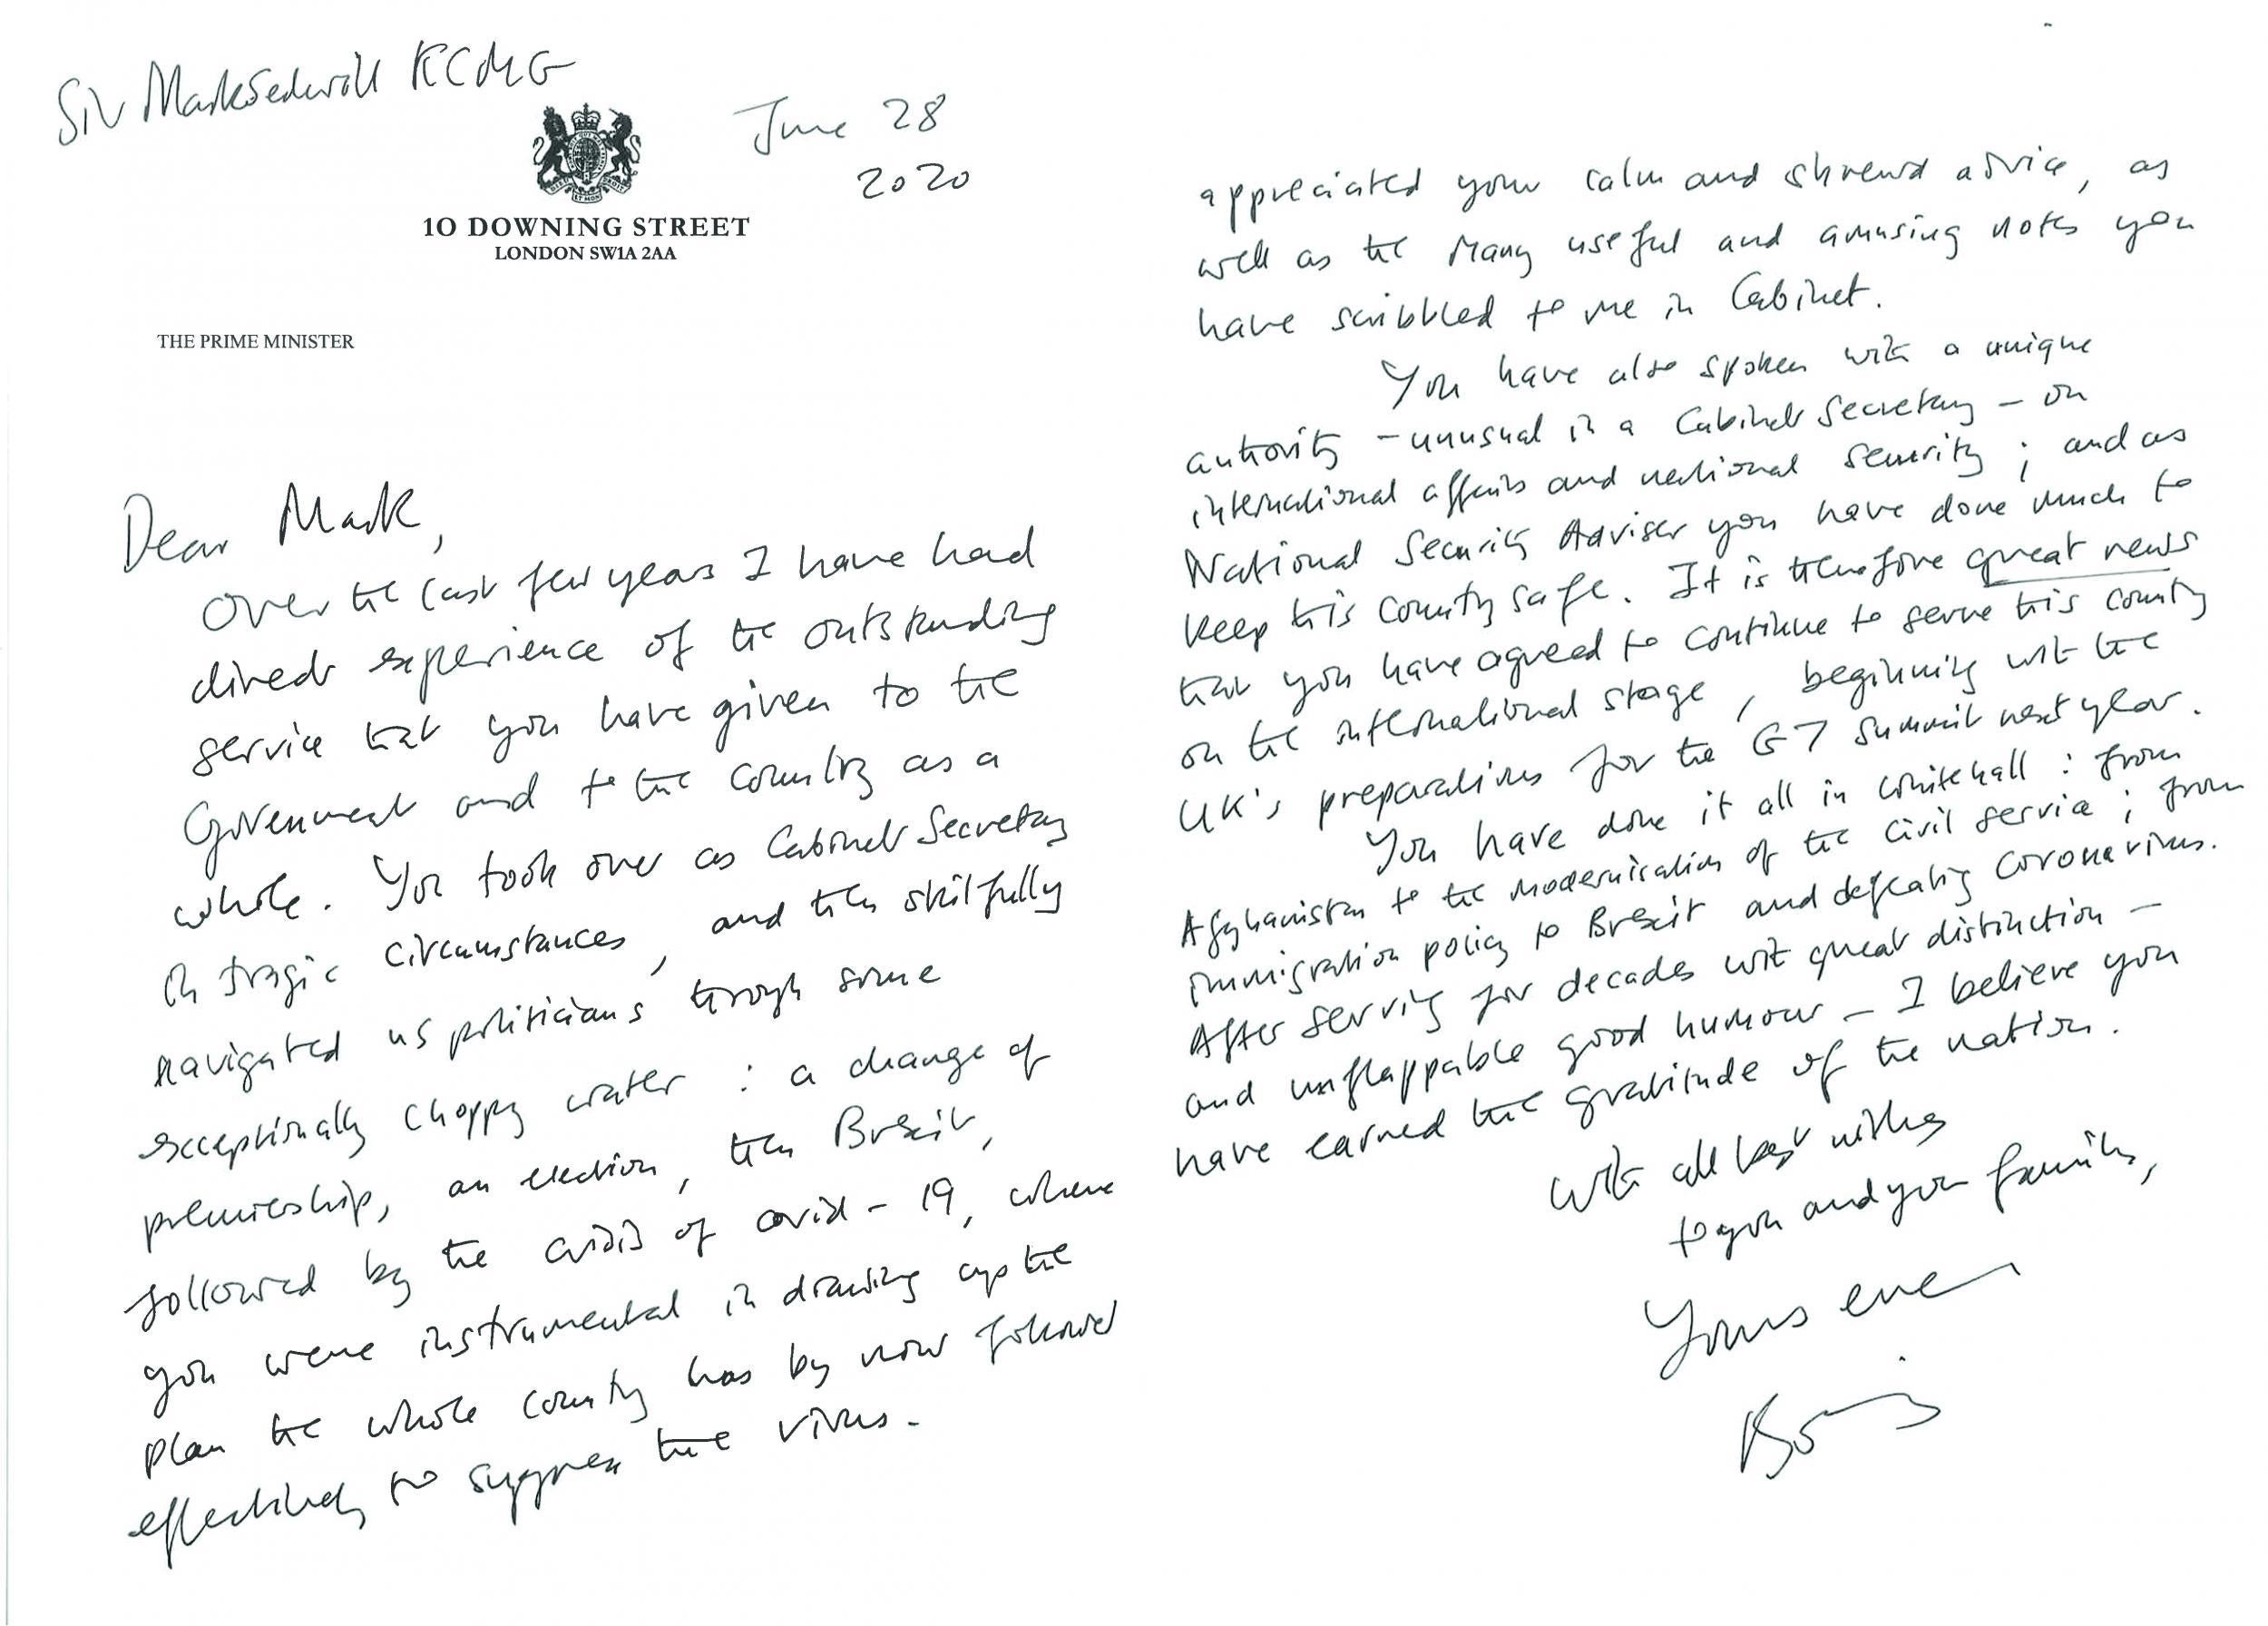 Sir Mark Sedwill KCMG
June 28
2020
10 DOWNING STREET
LONDON SW1A 2AA
THE PRIME MINISTER
Dear Mark,
Over the last few years I have had
direct experience of the outstanding
service that you have given to the
Government and to the country as a
whole. You took over as Cabinet Secretary
in tragic circumstances, and then skilfully
navigated us politicians through some
exceptionally choppy water: a change of
premiership, an election, then Brexit,
followed by the crisis of covid-19, where
you were instrumental in drawing up the
plan the whole country has by now followed
effectively to suppress the virus.
appreciated your calm and shrewd advice, as
well as the many useful and amusing notes you
have scribbled to me in Cabinet.
You have also spoken with a unique
authority - unusual in a Cabinet Secretary - on
international affairs and national security; and as
National Security Adviser you have done much to
keep this country safe. It is therefore great news
that you have agreed to continue to serve this country
on the international stage, beginning with the
UK's preparations for the G7 Summit next year.
You have done it all in Whitehall: from
Afghanistan to the modernisation of the civil service; from
immigration policy to Brexit and defeating coronavirus.
After serving for decades with great distinction -
and unflappable good humour - I believe you
have earned the gratitude of the nation.
With all best wishes
to you and your family,
Yours ever
Boris